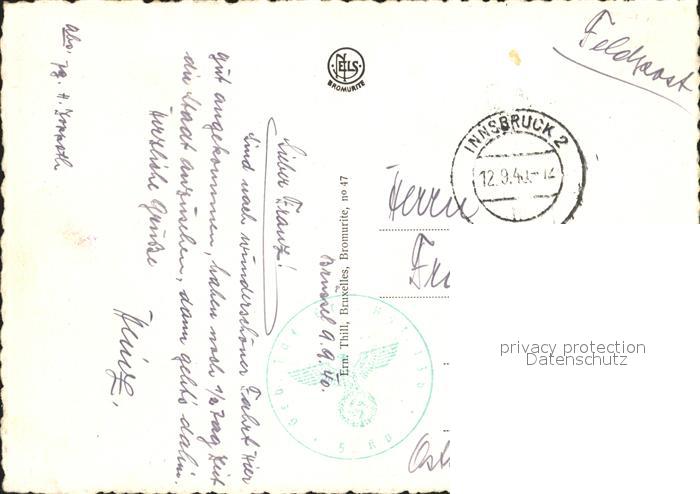 Feldpost
NELS
BROMURITE
INNSBRUCK 2
12.9.40.-12
Herrn
Ern. Thill, Bruxelles, Bromurite, no 47
Brüssel 9.9.40.
Lieber Franz!
Sind nach wunderschöner Fahrt hier
gut angekommen, haben noch 1/2 Tag Zeit
die Stadt anzusehen, dann gehts dahin.
Herzliche Grüße
Heinz.
Abs.
privacy protection
Datenschutz